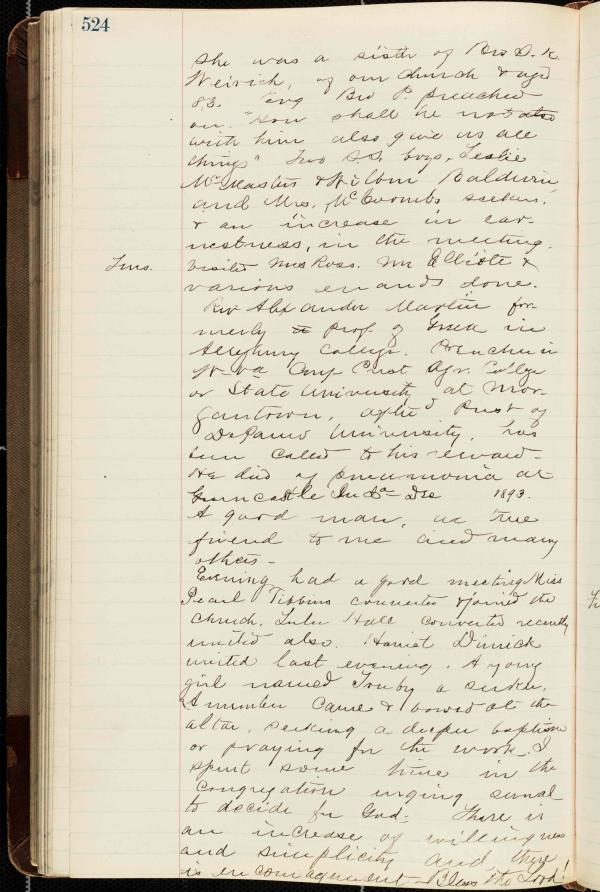 524
She was a sister of Bro D. K.
Weirich, of our Church & aged
83. Evg Bro P. preached
on. "How shall he not also
with him also give us all
things" Two S.S. boys, Leslie
McMasters & Wilbur Baldwin,
and Mrs. McCoombs seekers.
& an increase in ear-
nestness, in the meeting.
Tues. Visited Mrs Ross. Mr Elliott &
various errands done.
Rev Alexander Martin for-
merly Prof. of Greek in
Allegheny College. Preacher in
W-Va Conf Prest Agr. College
or State University at Mor-
gantown, Prest of
DePauw University, has
been called to his reward-
He died of pneumonia at
Greencastle Inda- Dec 1893.
A good man, a true
friend to me and many
others-
Evening had a good meeting Miss
Pearl Tibbins converted & joined the
Church. Lulu Hall converted recently
united also. Harriet Dimick
united last evening. A young
girl named a seeker.
A number came & bowed at the
altar, seeking a deeper baptism
or praying for the work. I
spent some time in the
Congregation urging several
to decide for God- There is
an increase of willingness
and simplicity and there
is encouragement- Bless the Lord!